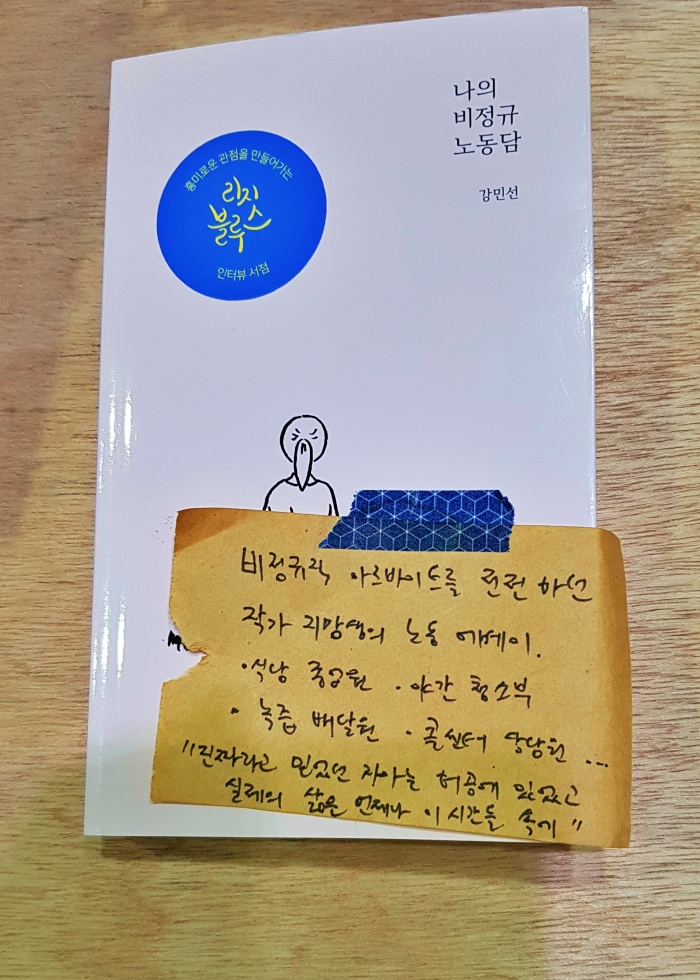 나의
비정규
노동담
강민선
흥미로운 관점을 만들어가는
리지
블루스
인터뷰 서점
비정규직 아르바이트를 전전 하던
작가 지망생의 노동 에세이.
·식당 종업원 ·야간 청소부
·녹즙 배달원 ·콜센터 상담원 ...
"진짜라고 믿었던 자아는 허공에 있었고
실제의 삶은 언제나 이 시간들 속에"